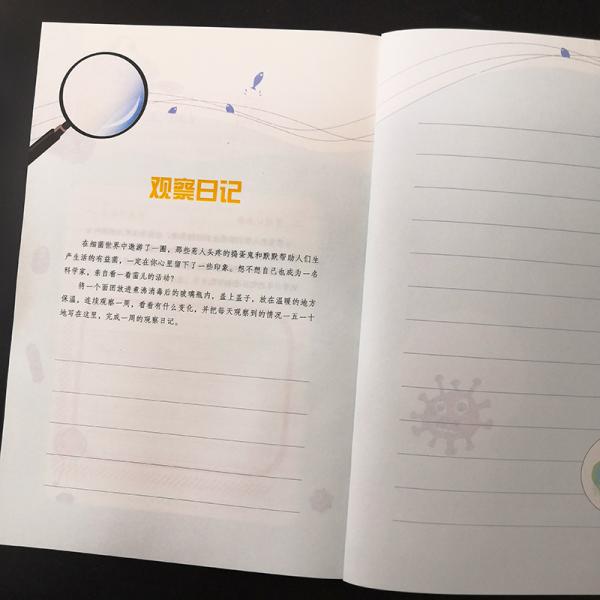 观察日记
在细菌世界中遨游了一圈，那些惹人头疼的捣蛋鬼和默默帮助人们生
产生活的有益菌，一定在你心里留下了一些印象。想不想自己也成为一名
科学家，亲自看一看菌儿的活动？
将一个面团放进煮沸消毒后的玻璃瓶内，盖上盖子，放在温暖的地方
保温，连续观察一周，看看有什么变化，并把每天观察到的情况一五一十
地写在这里，完成一周的观察日记。